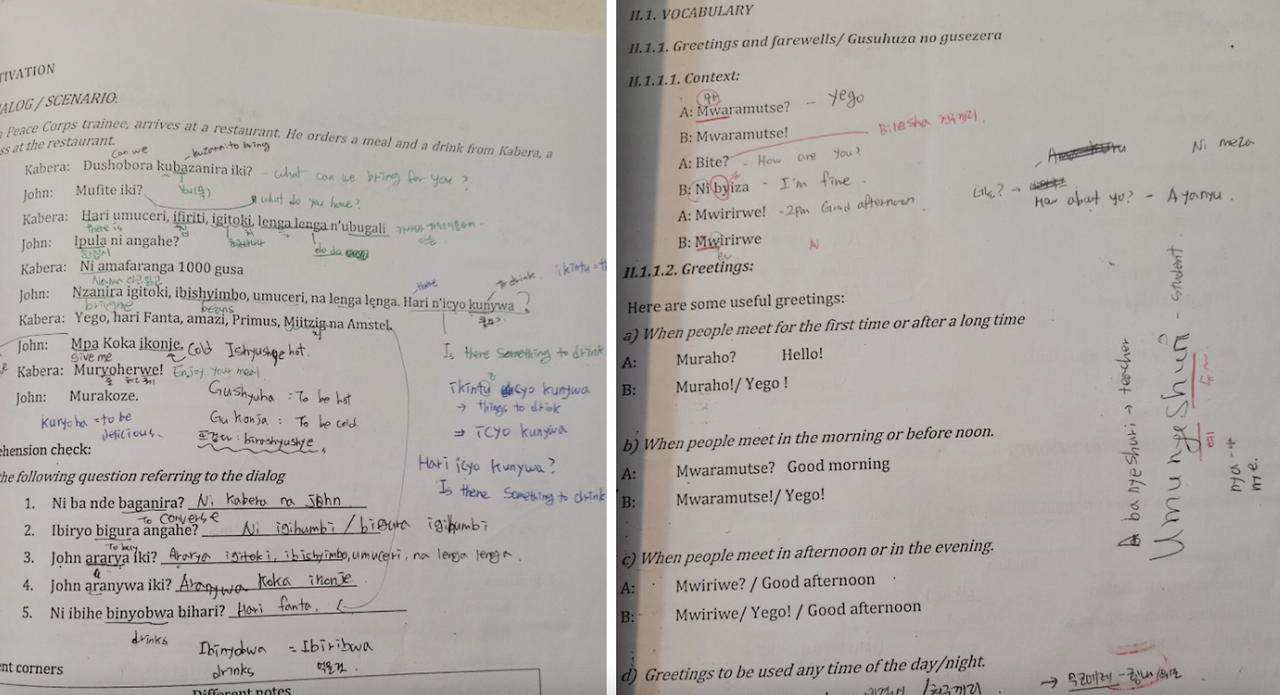 TIVATION
ALOG / SCENARIO:
Peace Corps trainee, arrives at a restaurant. He orders a meal and a drink from Kabera, a
ss at the restaurant.
can we
Kabera: Dushobora kubazanira iki? - what can we bring for you?
John: Mufite iki?
what do you have?
Kabera: Hari umuceri, ifiriti, igitoki, lenga lenga n'ubugali
there is
John: Ipula ni angahe?
Kabera: Ni amafaranga 1000 gusa
John: Nzanira igitoki, ibishyimbo, umuceri, na lenga lenga. Hari n'icyo kunywa?
bring me beans
to drink
Kabera: Yego, hari Fanta, amazi, Primus, Miitzig na Amstel.
John: Mpa Koka ikonje. Cold Ishyushye hot.
give me
Is there something to drink
Kabera: Muryoherwe! Enjoy your meal
John: Murakoze.
Gushyuha : To be hot
Gukonja : To be cold
biroshyushye
kuryoha = to be delicious.
ikintu cyo kunywa
→ things to drink
⇒ icyo kunywa
Hari icyo kunywa?
Is there something to drink
ehension check:
he following question referring to the dialog
1. Ni ba nde baganira? Ni Kabera na John
To converse
2. Ibiryo bigura angahe? Ni igihumbi / bigura igihumbi
To buy
3. John ararya iki? Ararya igitoki, ibishyimbo, umuceri, na lenga lenga.
4. John aranywa iki? Aranywa Koka ikonje
5. Ni ibihe binyobwa bihari? Hari fanta.
drinks
Ibinyobwa = Ibiribwa
drinks 먹을것
nt corners
Different notes
II.1. VOCABULARY
II.1.1. Greetings and farewells/ Gusuhuza no gusezera
II.1.1.1. Context:
A: Mwaramutse? - Yego
B: Mwaramutse!
Bitesha 친구끼리
A: Bite? - How are you?
Ni meza
B: Ni byiza - I'm fine.
How about yo? -
A: Mwirirwe! - 2pm Good afternoon
B: Mwirirwe
II.1.1.2. Greetings:
Here are some useful greetings:
a) When people meet for the first time or after a long time
A: Muraho? Hello!
B: Muraho!/ Yego !
b) When people meet in the morning or before noon.
A: Mwaramutse? Good morning
B: Mwaramutse!/ Yego!
c) When people meet in afternoon or in the evening.
A: Mwiriwe? / Good afternoon
B: Mwiriwe/ Yego! / Good afternoon
d) Greetings to be used any time of the day/night.
/친구끼리
abanyeshuri → teacher
Umunyeshuri - student
nya → 냐
nye.